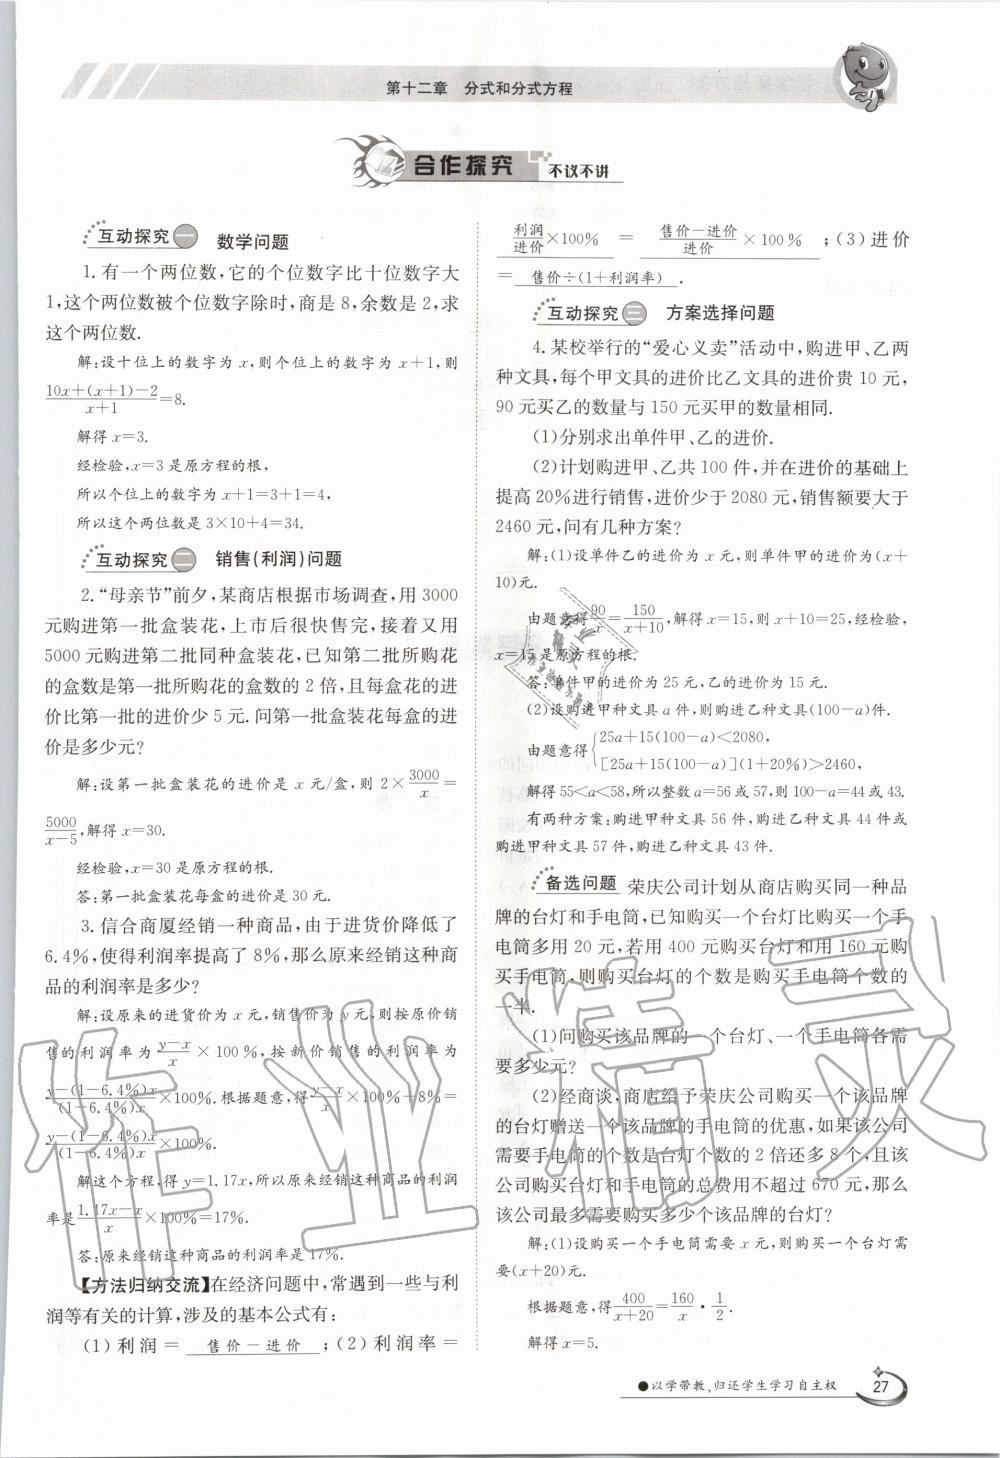 第十二章 分式和分式方程
合作探究 不议不讲
互动探究一 数学问题
1.有一个两位数,它的个位数字比十位数字大
1,这个两位数被个位数字除时,商是8,余数是2,求
这个两位数.
解:设十位上的数字为x,则个位上的数字为x+1,则
(10x+(x+1)-2)/(x+1)=8.
解得x=3.
经检验,x=3是原方程的根,
所以个位上的数字为x+1=3+1=4,
所以这个两位数是3×10+4=34.
互动探究二 销售(利润)问题
2.“母亲节”前夕,某商店根据市场调查,用3000
元购进第一批盒装花,上市后很快售完,接着又用
5000元购进第二批同种盒装花,已知第二批所购花
的盒数是第一批所购花的盒数的2倍,且每盒花的进
价比第一批的进价少5元.问第一批盒装花每盒的进
价是多少元?
解:设第一批盒装花的进价是x元/盒,则2×3000/x=
5000/(x-5),解得x=30.
经检验,x=30是原方程的根.
答:第一批盒装花每盒的进价是30元.
3.信合商厦经销一种商品,由于进货价降低了
6.4%,使得利润率提高了8%,那么原来经销这种商
品的利润率是多少?
解:设原来的进货价为x元,销售价为y元,则按原价销
售的利润率为(y-x)/x×100%,按新价销售的利润率为
(y-(1-6.4%)x)/((1-6.4%)x)×100%.根据题意,得(y-x)/x×100%+8%=
(y-(1-6.4%)x)/((1-6.4%)x)×100%.
解这个方程,得y=1.17x,所以原来经销这种商品的利润
率是(1.17x-x)/x×100%=17%.
答:原来经销这种商品的利润率是17%.
【方法归纳交流】在经济问题中,常遇到一些与利
润等有关的计算,涉及的基本公式有:
(1)利润= 售价-进价 ;(2)利润率=
利润/进价×100% = (售价-进价)/进价×100% ;(3)进价
= 售价÷(1+利润率) .
互动探究三 方案选择问题
4.某校举行的“爱心义卖”活动中,购进甲、乙两
种文具,每个甲文具的进价比乙文具的进价贵10元,
90元买乙的数量与150元买甲的数量相同.
(1)分别求出单件甲、乙的进价.
(2)计划购进甲、乙共100件,并在进价的基础上
提高20%进行销售,进价少于2080元,销售额要大于
2460元,问有几种方案?
解:(1)设单件乙的进价为x元,则单件甲的进价为(x+
10)元.
由题意得90/x=150/(x+10),解得x=15,则x+10=25,经检验,
x=15是原方程的根.
答:单件甲的进价为25元,乙的进价为15元.
(2)设购进甲种文具a件,则购进乙种文具(100-a)件.
由题意得{25a+15(100-a)<2080,
[25a+15(100-a)](1+20%)>2460,
解得55<a<58,所以整数a=56或57,则100-a=44或43.
有两种方案:购进甲种文具56件,购进乙种文具44件或
购进甲种文具57件,购进乙种文具43件.
备选问题 荣庆公司计划从商店购买同一种品
牌的台灯和手电筒,已知购买一个台灯比购买一个手
电筒多用20元,若用400元购买台灯和用160元购
买手电筒,则购买台灯的个数是购买手电筒个数的
一半.
(1)问购买该品牌的一个台灯、一个手电筒各需
要多少元?
(2)经商谈,商店给予荣庆公司购买一个该品牌
的台灯赠送一个该品牌的手电筒的优惠,如果该公司
需要手电筒的个数是台灯个数的2倍还多8个,且该
公司购买台灯和手电筒的总费用不超过670元,那么
该公司最多需要购买多少个该品牌的台灯?
解:(1)设购买一个手电筒需要x元,则购买一个台灯需
要(x+20)元.
根据题意,得400/(x+20)=160/x·1/2.
解得x=5.
●以学带教,归还学生学习自主权 27
作业精灵